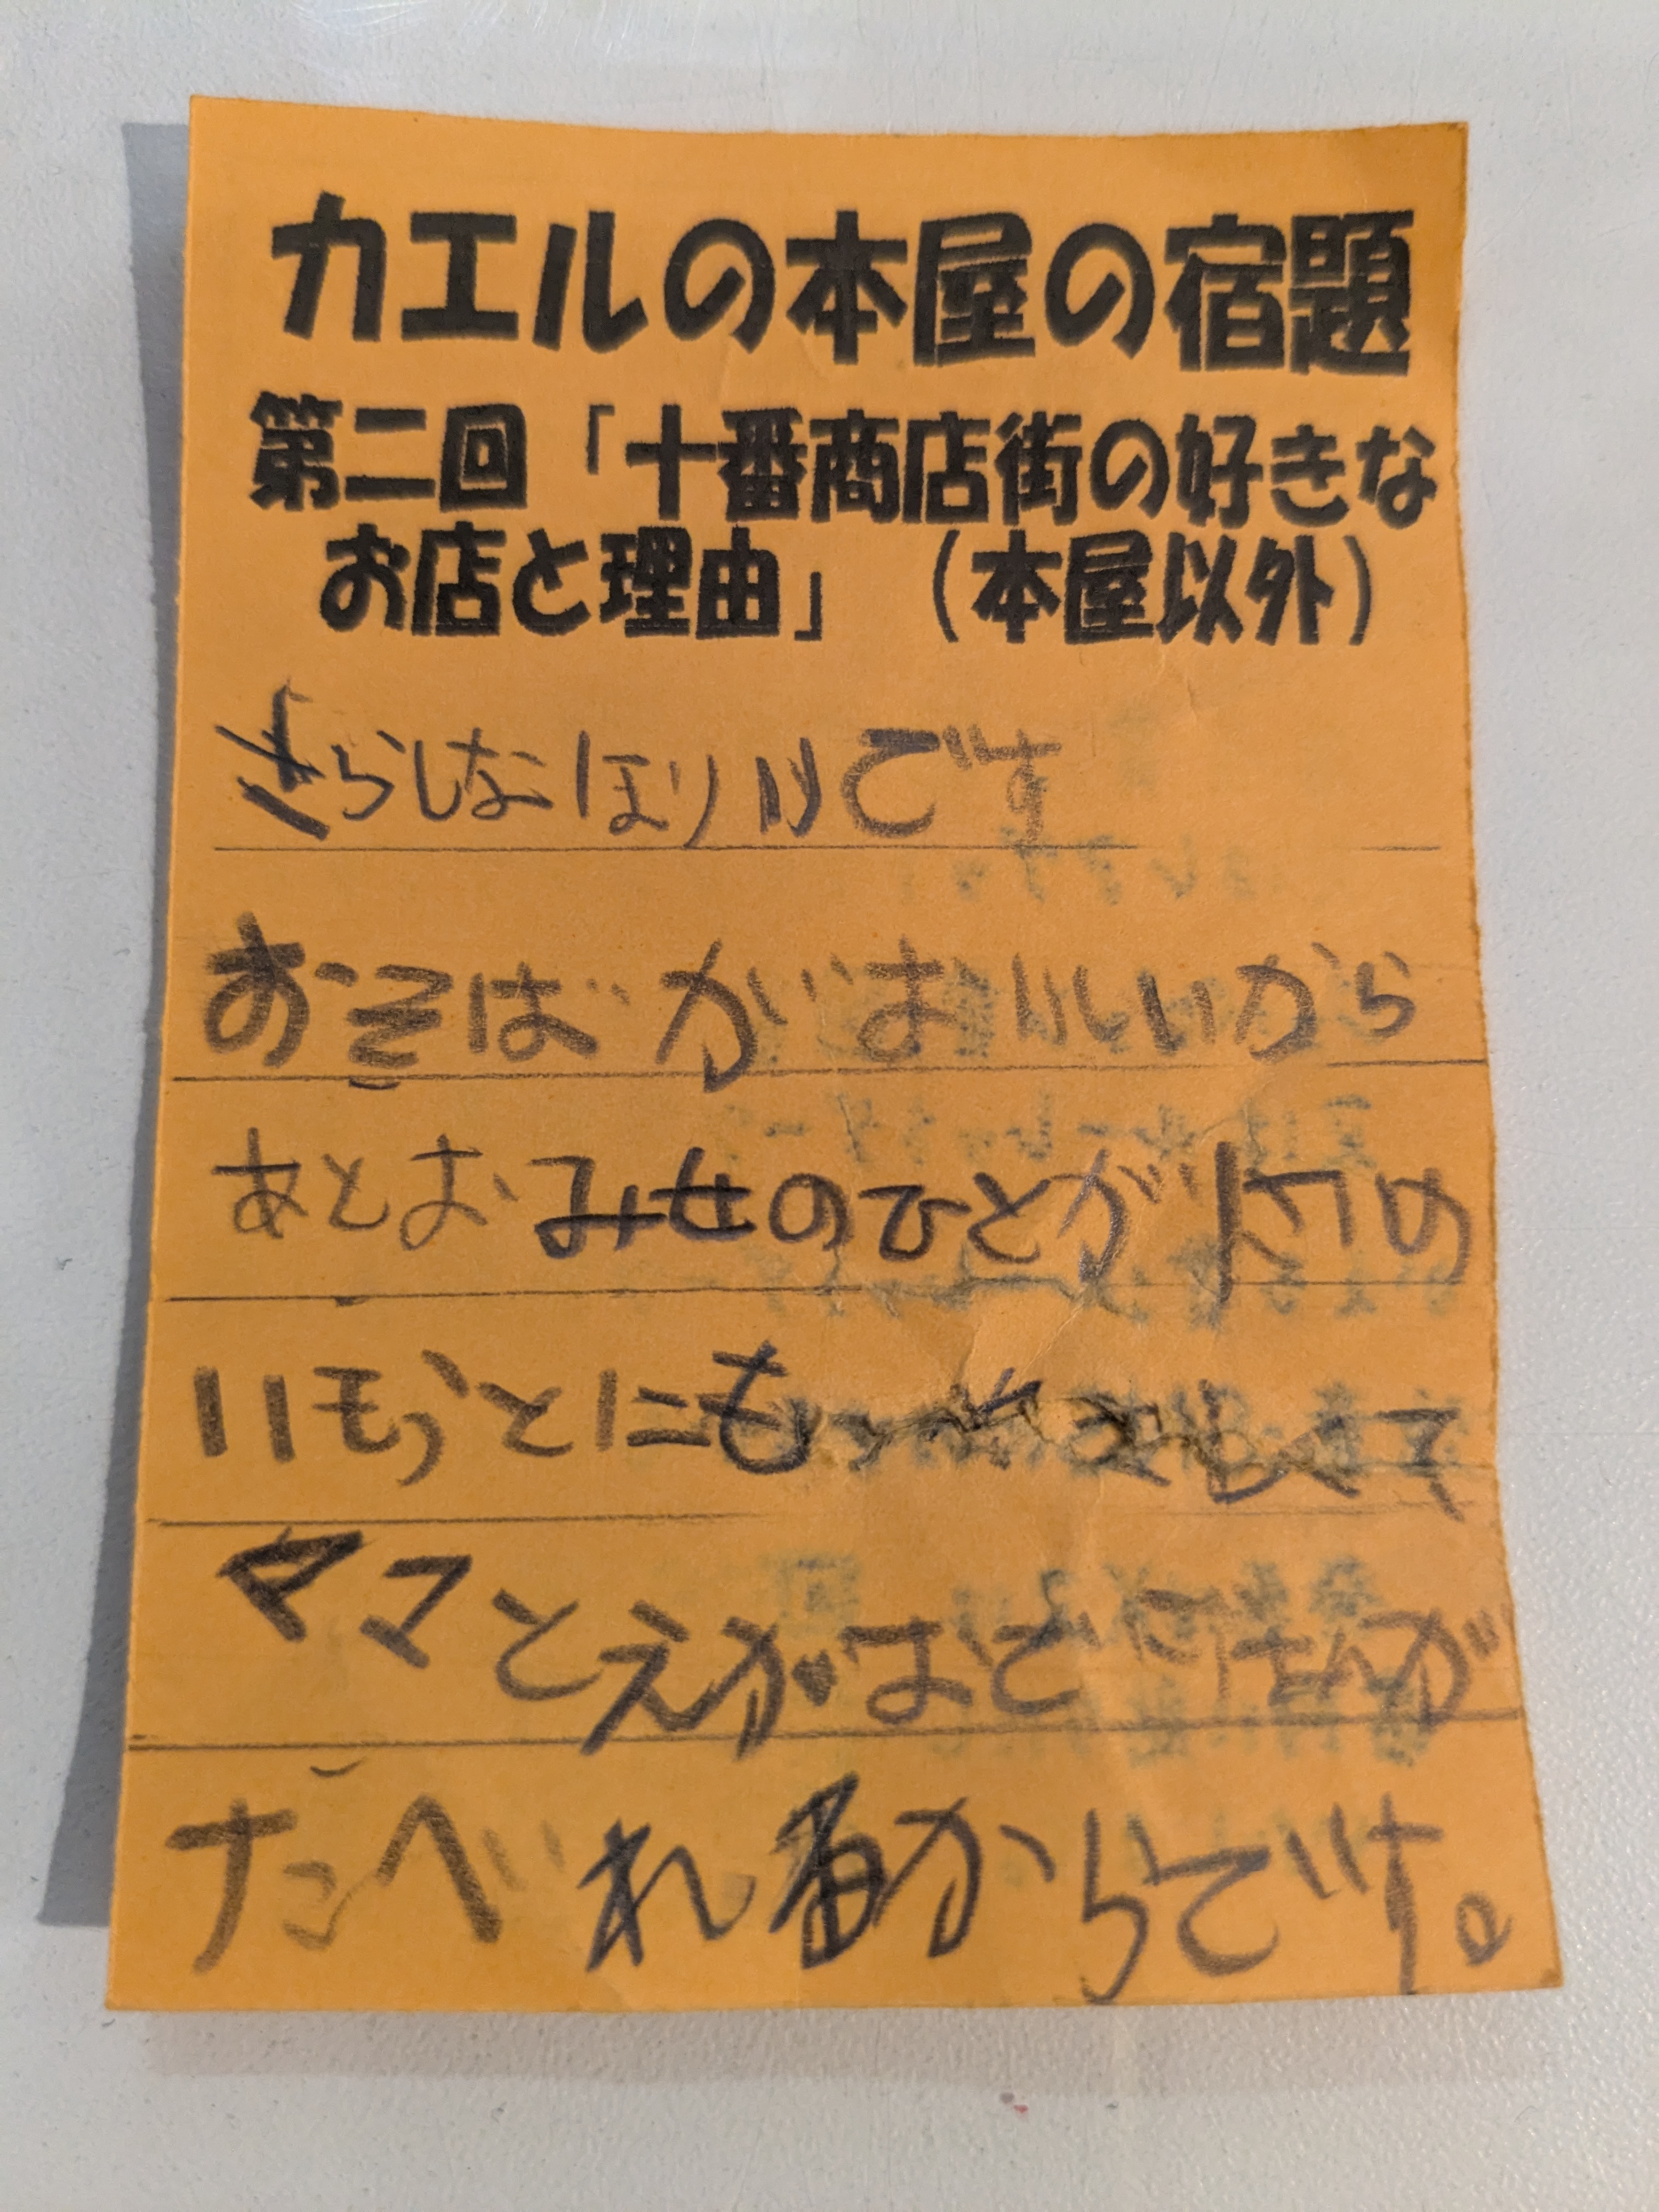 カエルの本屋の宿題
第二回「十番商店街の好きな
お店と理由」（本屋以外）
さらしなほり川です
おそばがおいしいから
あとおみせのひとが
いもうとにも さしくて
ママとえがおでごはんが
たべれるからです。